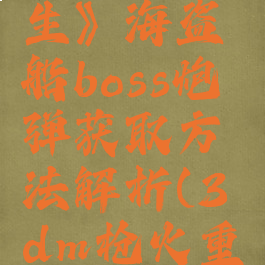 生》海盗
船boss炮
弹获取方
法解析(3
dm枪火重